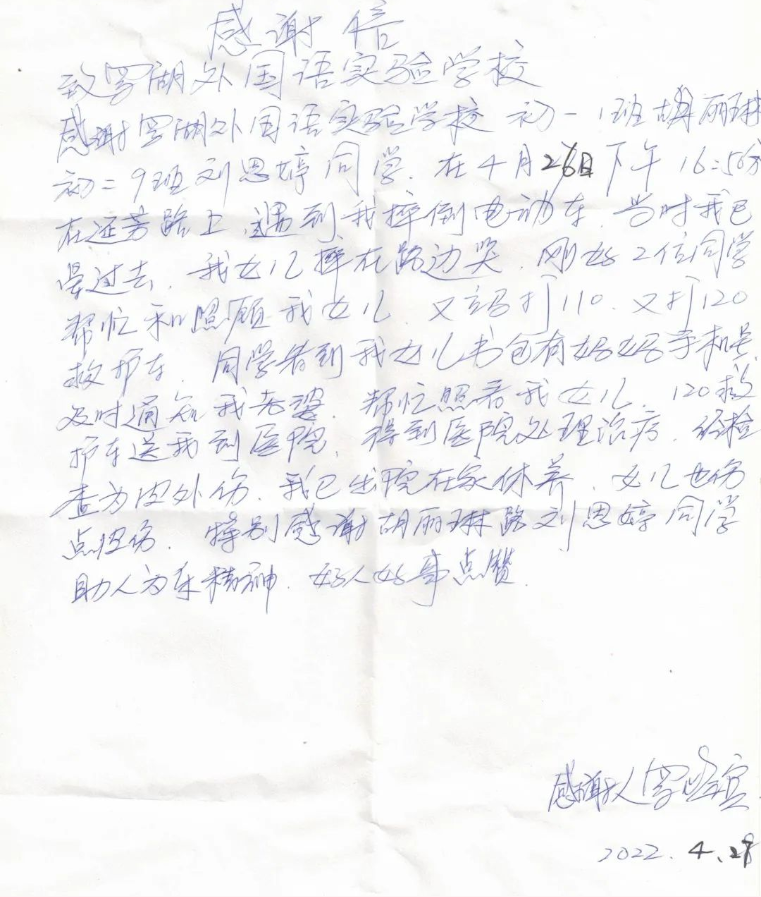 感谢信
致罗湖外国语实验学校
感谢罗湖外国语实验学校 初一 1班胡丽琳
初二9班刘思婷同学. 在4月26日下午16:56分
在莲芳路上 遇到我摔倒电动车. 当时我已
晕过去. 我女儿摔在路边哭. 刚好2位同学
帮忙和照顾我女儿. 又立马打110. 又打120
救护车. 同学看到我女儿书包有妈妈手机号.
及时通知我老婆. 帮忙照看我女儿. 120救
护车送我到医院. 得到医院处理治疗. 经检
查为皮外伤. 我已出院在家休养. 女儿也伤
点皮伤. 特别感谢胡丽琳 刘思婷同学
助人为乐精神. 好人好事点赞.
感谢人 罗
2022.4.28